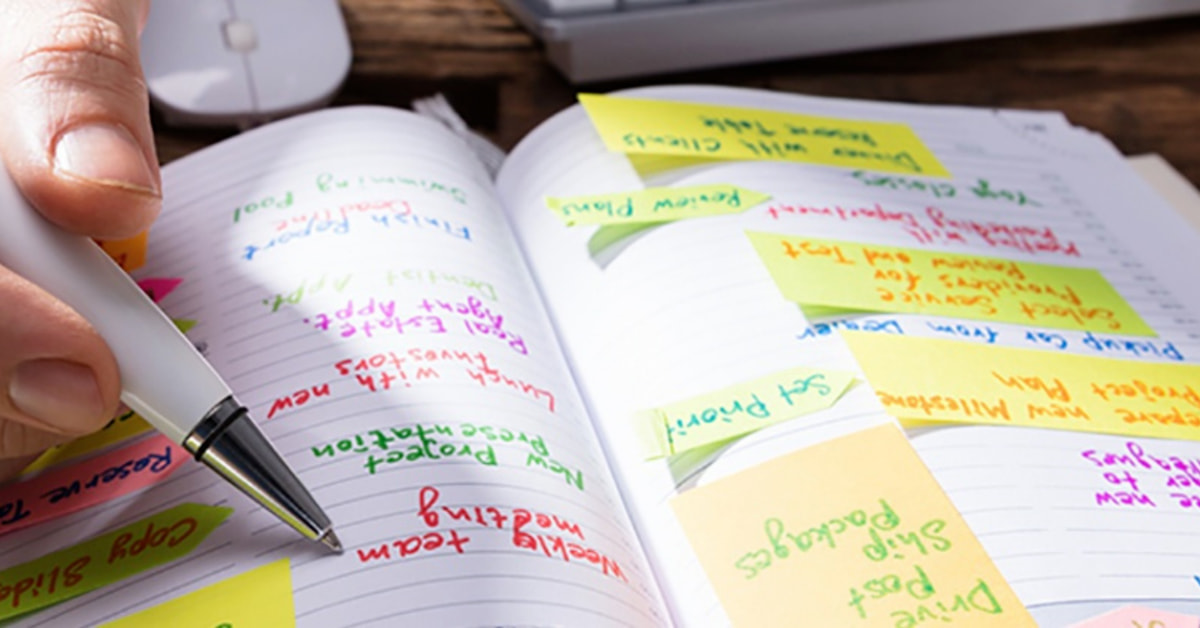 Drive Post
Ship Packages
new
to
new Milestone
Project Plan
Set Priorit
Pickup Car from Dealer
Select Service
Providers for
Review and Test
Meeting with
Marketing Department
Review Plans
Yoga Classes
Dinner with Clients
Reserve Table
Weekly team
meeting
New Project
Presentation
Lunch with new
Investors
Real Estate
Agent Appt.
Dentist Appt.
Finish Report
Deadline
Swimming
Pool
Copy Slide
Reserve Ta